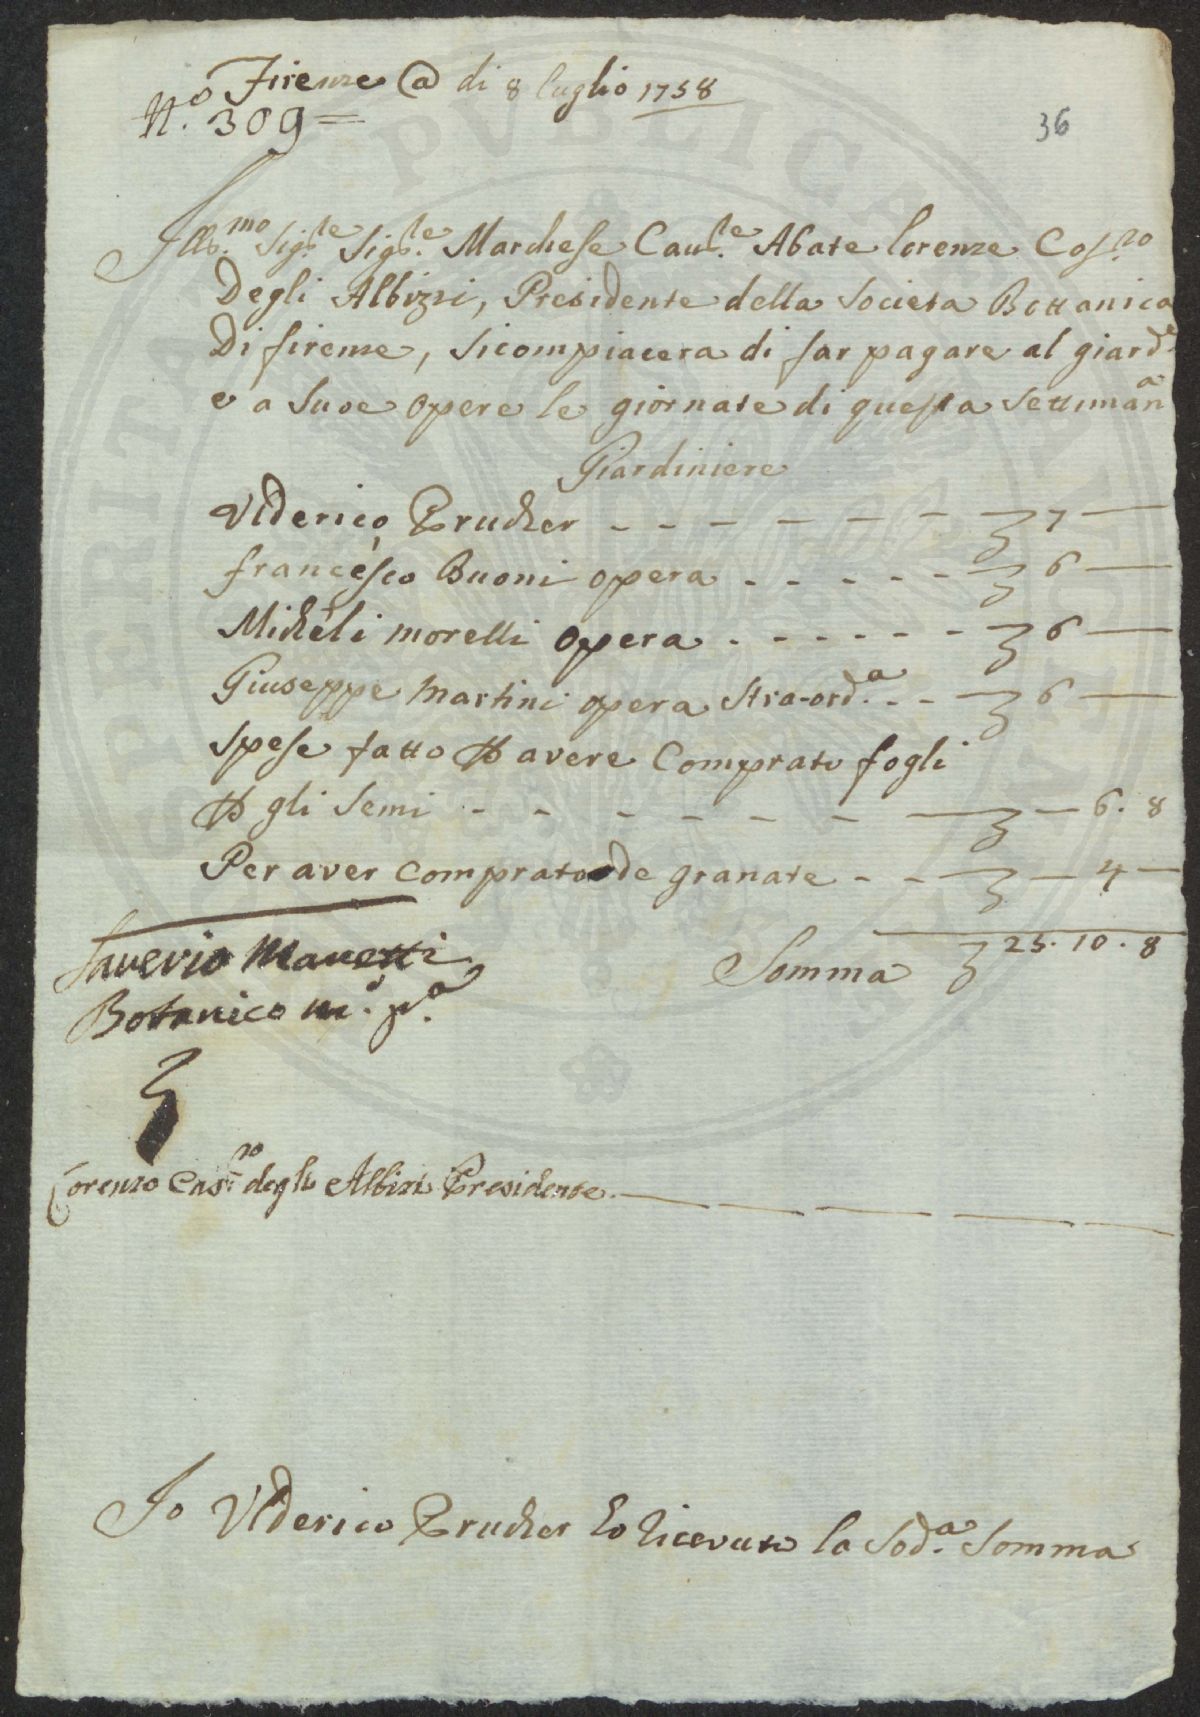 Firenze @ di 8 luglio 1758
N.o 309 =
36
Illo.mo Sig.le Sig.le Marchese Cau.le Abate lorenze Cos.mo
Degli Albizzi, Presidente della Societa Bottanica
Di firenze, si compiacera di far pagare al giard.e
e a Suoe opere le giornate di questa Settiman.a
Giardiniere
Vlderico Prucher - - - - - - - 7 —
francesco Buoni opera - - - - - 6 —
Micheli morelli opera - - - - - - 6 —
Giuseppe Martini opera Stra-ord.a - - 6 —
Spese fatto p avere Comprato fogli
p gli Semi - - - - - - - — 6. 8
Per aver Comprato de granate - - - 4 —
Somma 25. 10. 8
Saverio Manetti
Botanico m.o p.a
Lorenzo Cas.mo degli Albizi Presidente.
Io Vlderico Prucher ho ricevuto la Sod.a Somma
PVBLICAE